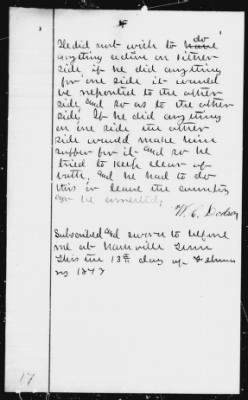 He did not wish to do
anything active on either
side if he did anything
for one side it would
be reported to the other
side, and so as to the other
side, If he did anything
on one side the other
side would make him
suffer for it and so he
tried to keep clear of
both, and he had to do
this or leave the country
he asserted;
W. C. Dodson
Subscribed and sworn to before
me at Nashville Tenn
this the 13th day of February
1877
17